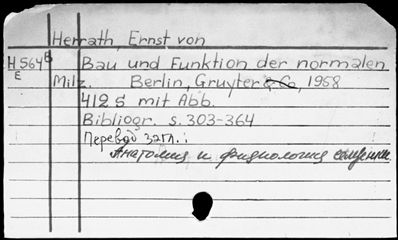 Herrath, Ernst von
H564 B Bau und Funktion der normalen
E Milz. Berlin, Gruyter & Co, 1958
412 S mit Abb.
Bibliogr. s. 303-364
Перевод загл.:
Анатомия и физиология селезенки